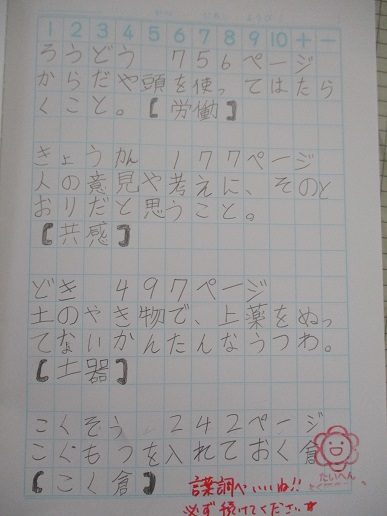 1 2 3 4 5 6 7 8 9 10 + −
ろうどう 756ページ
からだや頭を使ってはたら
くこと。【労働】
きょうかん 177ページ
人の意見や考えに、そのと
おりだと思うこと。
【共感】
どき 497ページ
土のやき物で、上薬をぬっ
てないかんたんなうつわ。
【土器】
こくそう 242ページ
こくもつを入れておく倉
【こく倉】
たいへん
言葉調べいいね!!
必ず続けてください